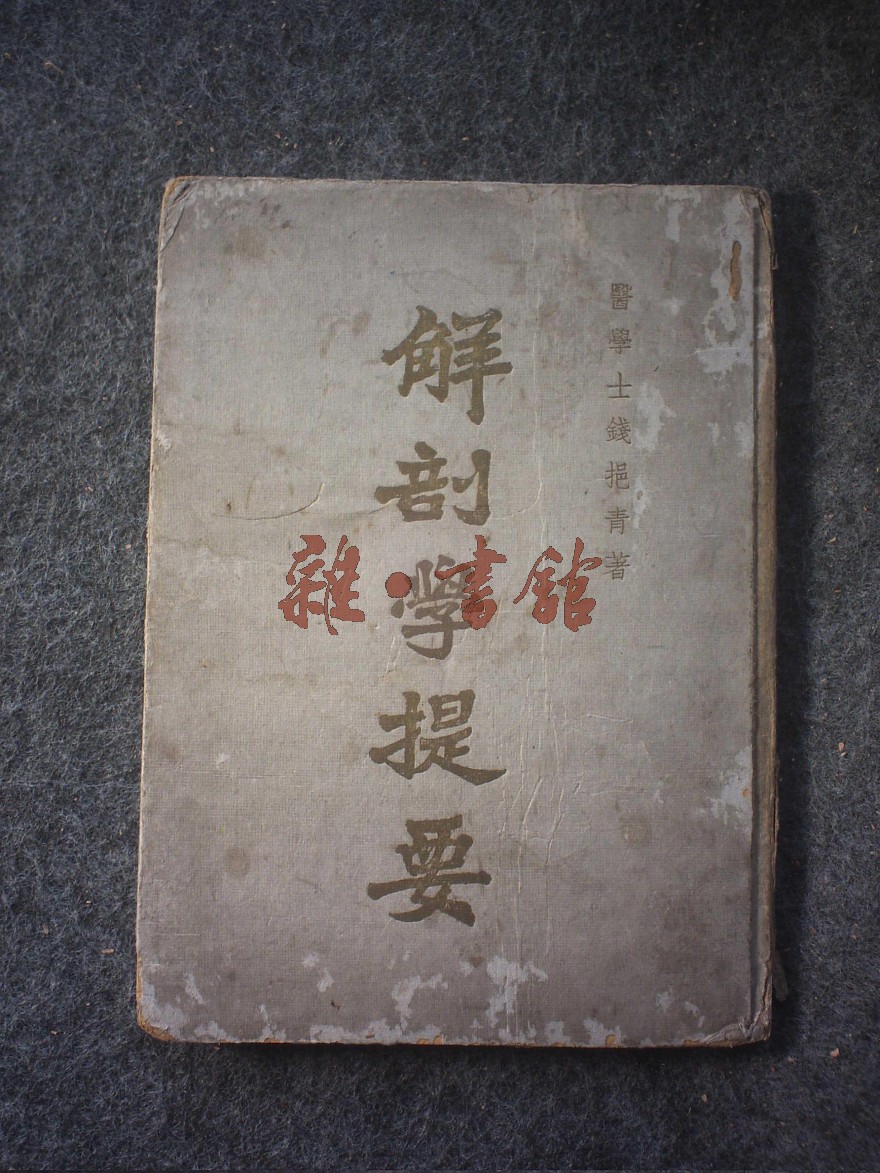 醫學士錢挹青著
解剖學提要
雜·書館